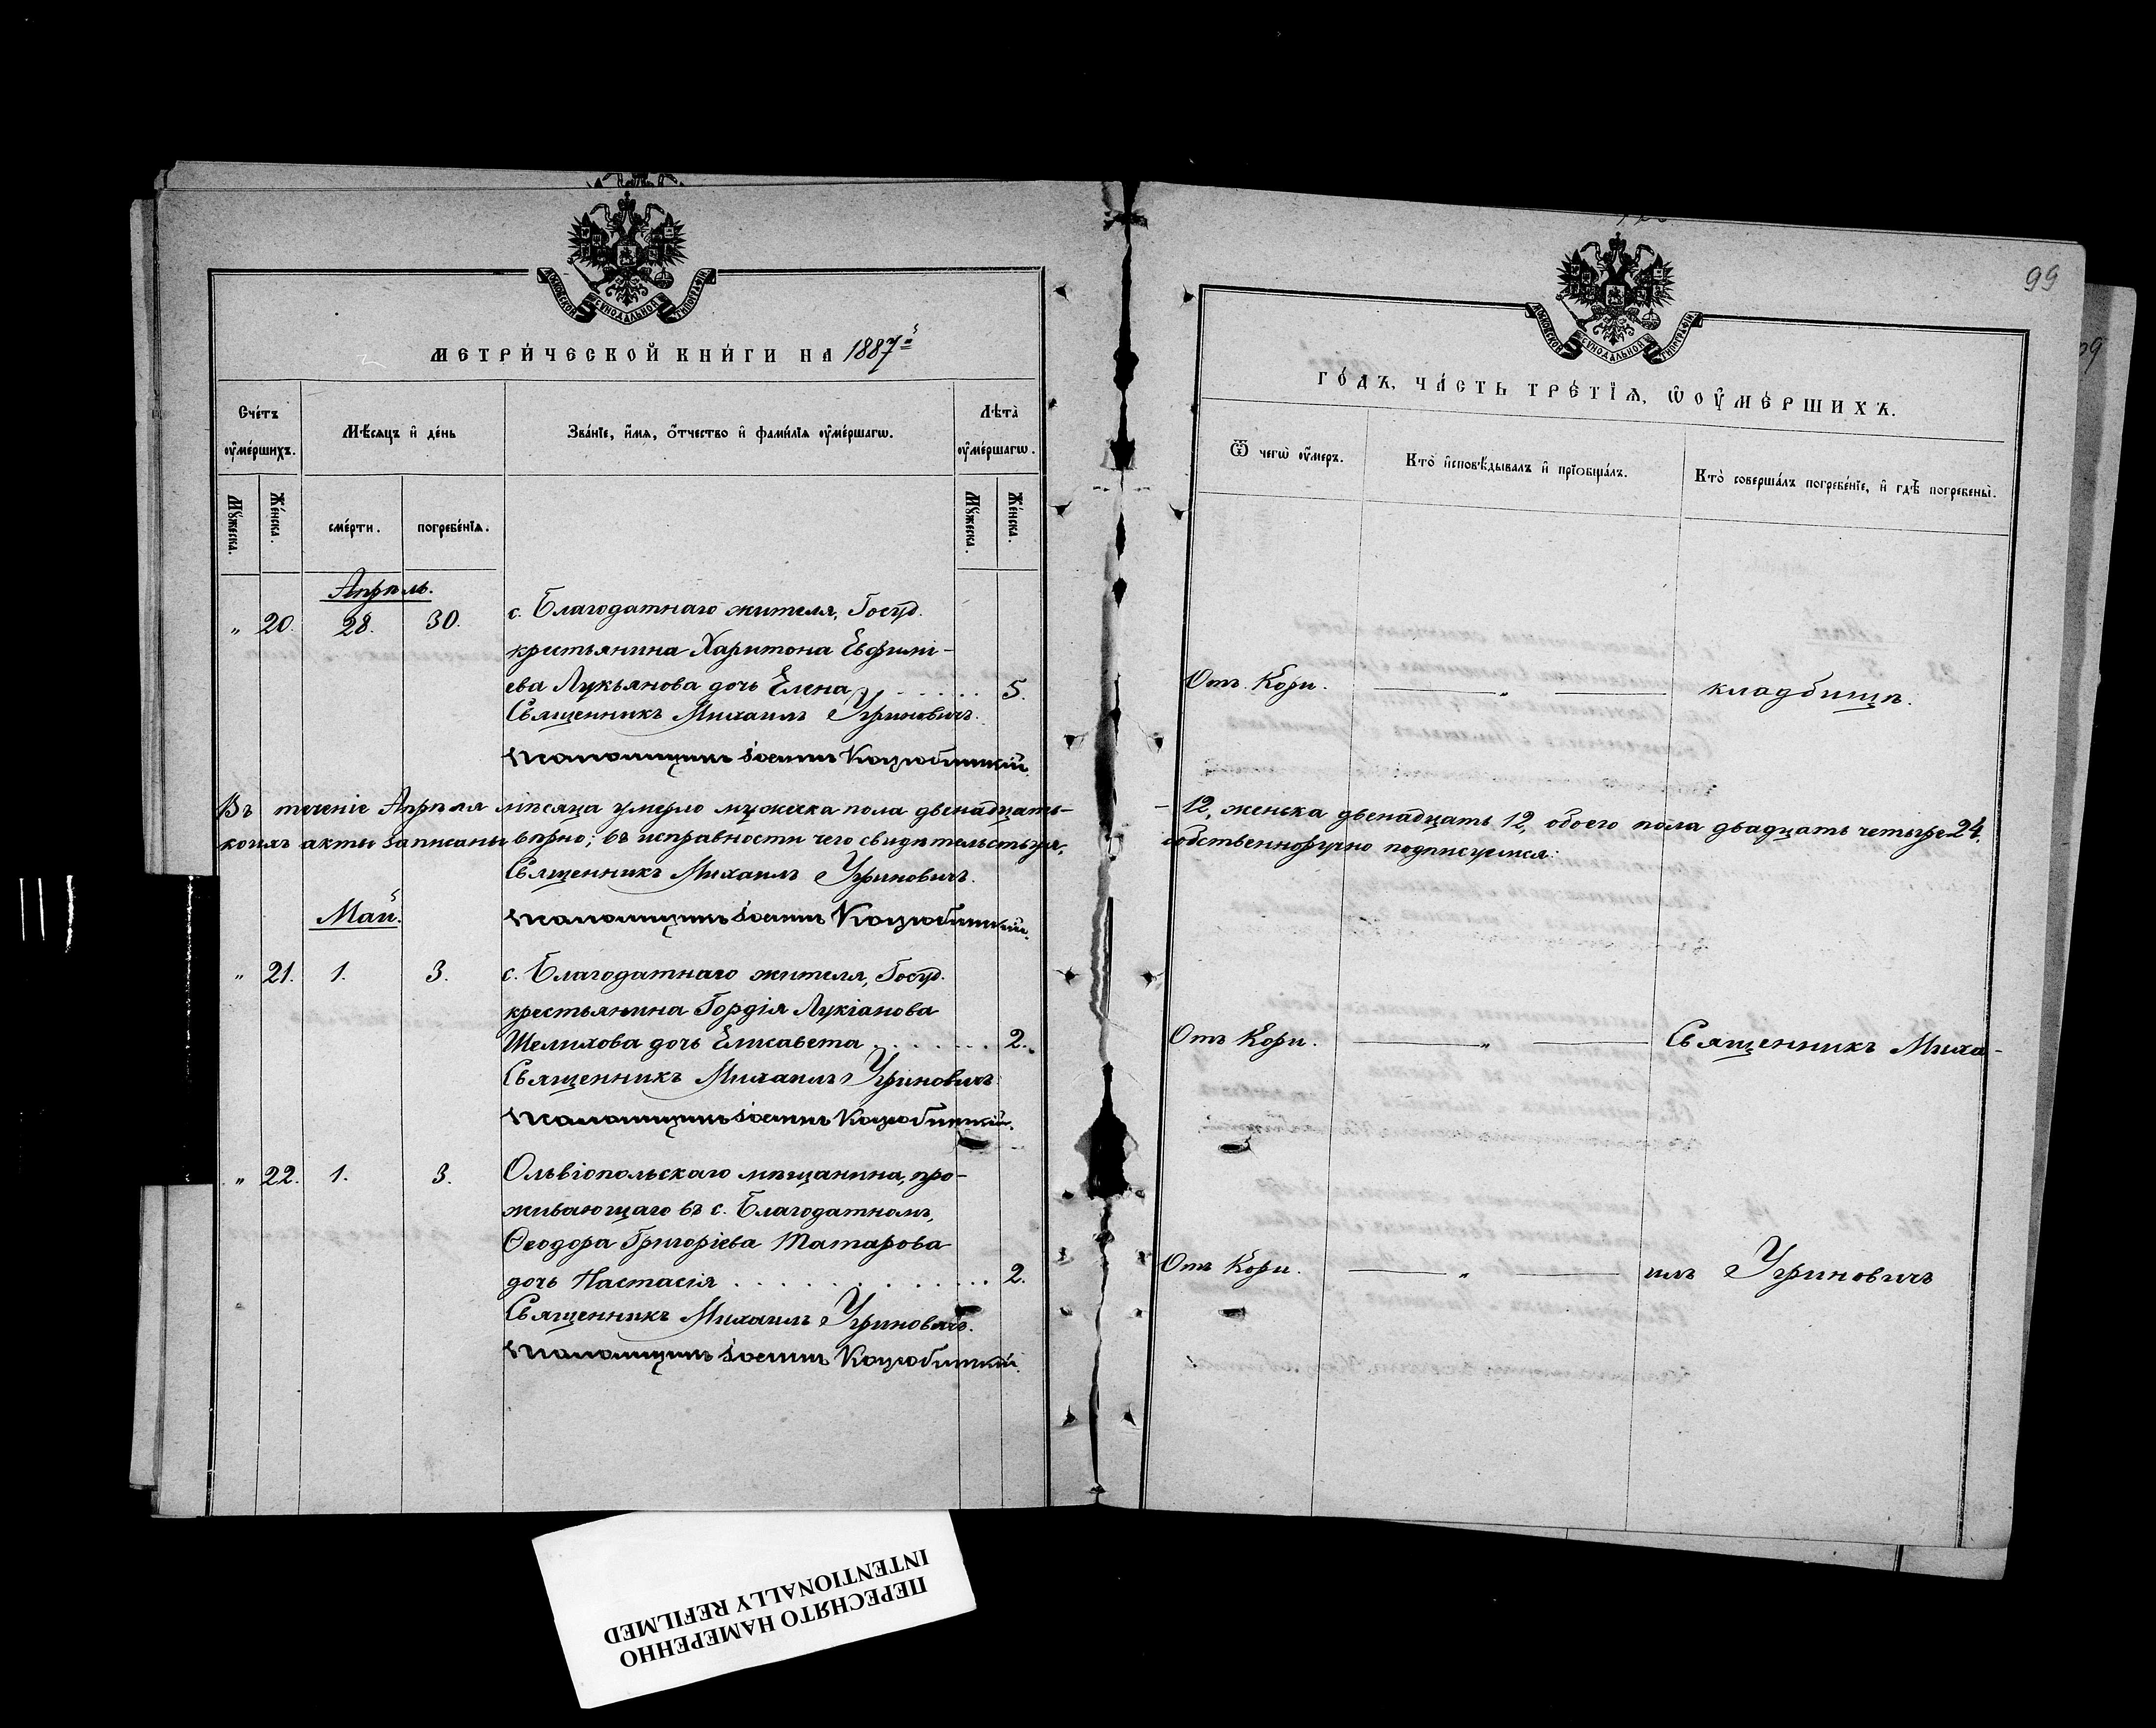 МОСКОВСКОЙ СѴНОДАЛЬНОЙ ТѴПОГРАФІИ
МЕТРИ́ЧЕСКОЙ КНИ́ГИ НА 1887й
Сче́тъ оу҆ме́ршихъ.
Мѣ́сяцъ и҆ де́нь
Зва́нїе, и҆́мя, ѻ҆́тчество и҆ фами́лїя оу҆ме́ршагѡ.
Лѣта̀ оу҆ме́ршагѡ.
Мꙋ́жеска.
Же́нска.
сме́рти.
погребе́нїя.
Мꙋ́жеска.
Же́нска.
Апрѣль.
" 20. 28. 30. с. Благодатнаго жителя, Госуд.
крестьянина Харитона Евфимі-
ева Лукьянова дочь Елена . . . . . . 5.
Священникъ Михаилъ Угриновичъ.
Псаломщикъ Іосифъ Коцюбинскій.
Въ теченіе Апрѣля мѣсяца умерло мужеска пола двенадцать-
коихъ акты записаны вѣрно; въ исправности чего свидѣтельствуя,
Священникъ Михаилъ Угриновичъ.
Май. Псаломщикъ Іосифъ Коцюбинскій.
" 21. 1. 3. с. Благодатнаго жителя, Госуд.
крестьянина Гордія Лукіанова
Шелихова дочь Елисавета . . . . . . 2.
Священникъ Михаилъ Угриновичъ
Псаломщикъ Іосифъ Коцюбинскій.
" 22. 1. 3. Ольвіопольскаго мѣщанина, про-
живающаго въ с. Благодатномъ,
Ѳеодора Григоріева Татарова
дочь Настасія . . . . . . . . . . . . 2.
Священникъ Михаилъ Угриновичъ.
Псаломщикъ Іосифъ Коцюбинскій.
99
МОСКОВСКОЙ СѴНОДАЛЬНОЙ ТѴПОГРАФІИ
ГО́ДЪ, ЧА́СТЬ ТРЕ́ТЇѦ, Ѡ҆ ОУ҆МЕ́РШИХЪ.
Ѿ чегѡ̀ оу҆́меръ.
Кто̀ и҆сповѣ́дывалъ и҆ прїѻбща́лъ.
Кто̀ соверша́лъ погребе́нїе, и҆ гдѣ̀ погребены̀.
Отъ Кори. — " — кладбищѣ.
- 12, женска двенадцать 12, обоего пола двадцать четыре 24.
собственноручно подписуемся:
Отъ Кори. — " — Священникъ Миха-
Отъ Кори. — " — илъ Угриновичъ
ПЕРЕСНЯТО НАМЕРЕННО
INTENTIONALLY REFILMED